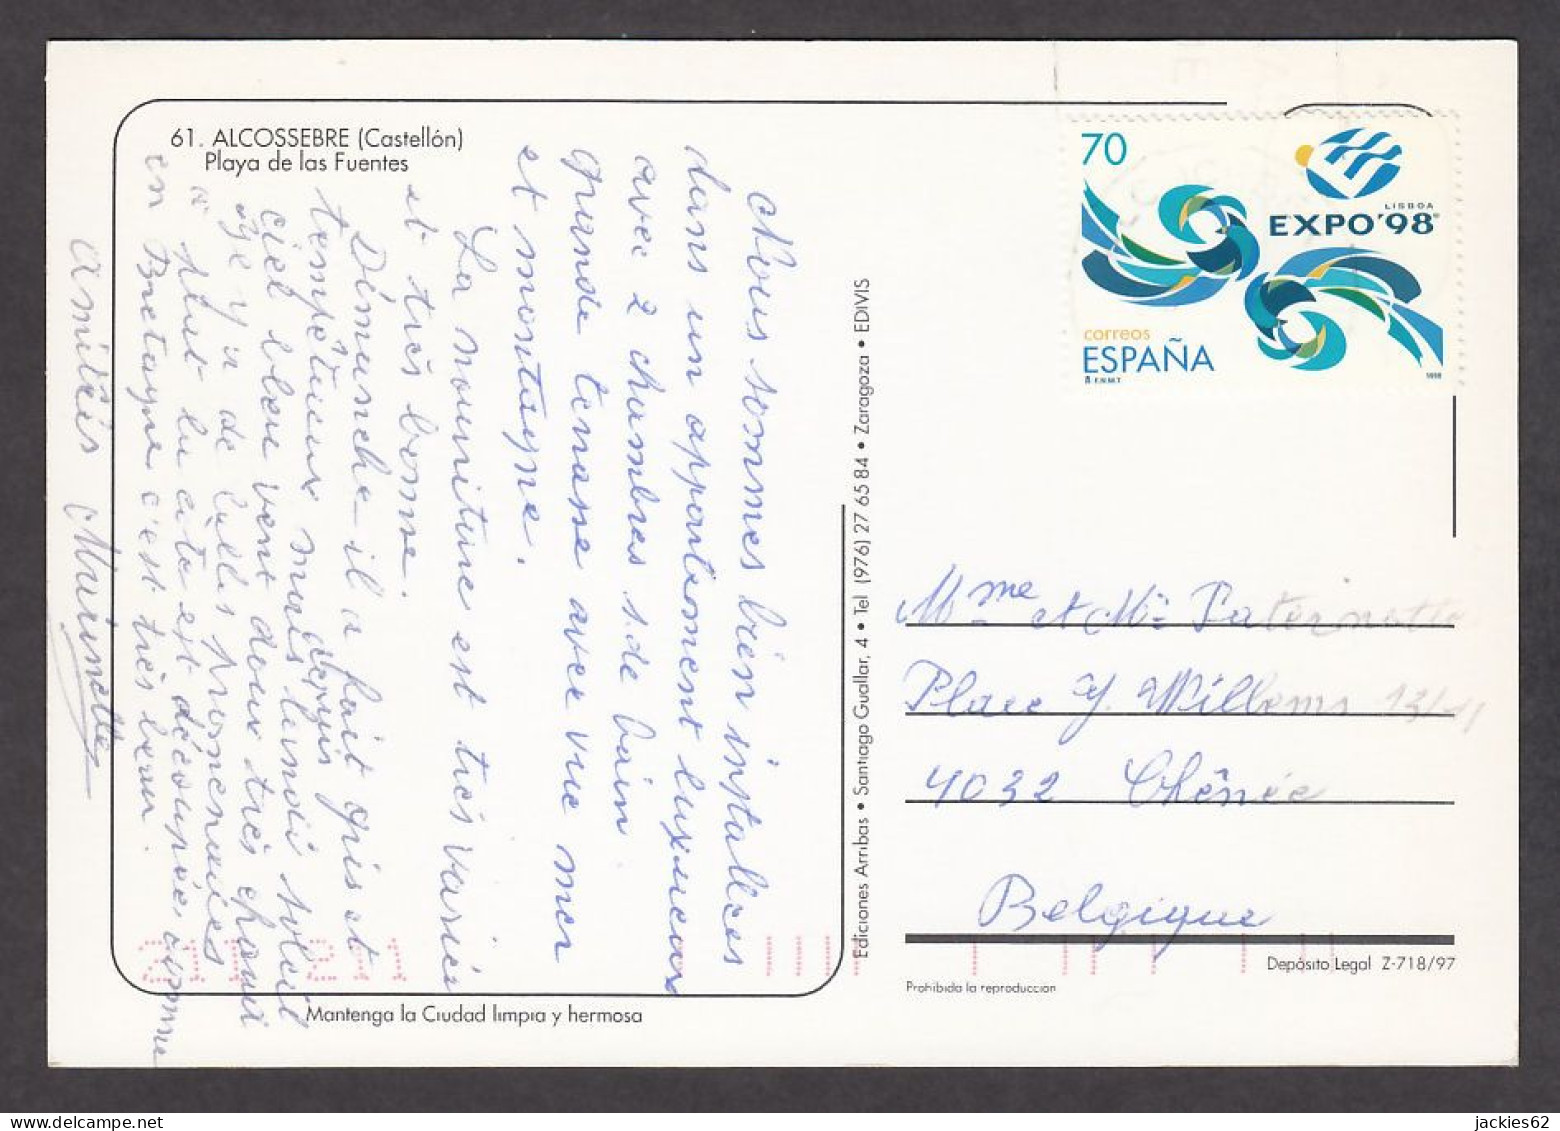 61. ALCOSSEBRE (Castellón)
Playa de las Fuentes
Nous sommes bien installées
dans un appartement luxueux
avec 2 chambres s. de bain
grande terrasse avec vue mer
et montagne.
La nourriture est très variée
et très bonne.
Dimanche il a fait gris et
tempétueux mais depuis lundi soleil
ciel bleu vent doux très chaud
Il y a de belles promenades
à plat la côte est découpée, comme
en Bretagne c'est très beau.
Amitiés
Ediciones Arribas • Santiago Guallar, 4 • Tel (976) 27 65 84 • Zaragoza • EDIVIS
70
LISBOA
EXPO'98
correos
ESPAÑA
F.N.M.T.
1998
Mme et Mr Paternotte
Place J. Willems 13/11
4032 Chênée
Belgique
Depósito Legal Z-718/97
Prohibida la reproduccion
Mantenga la Ciudad limpia y hermosa
jackies62